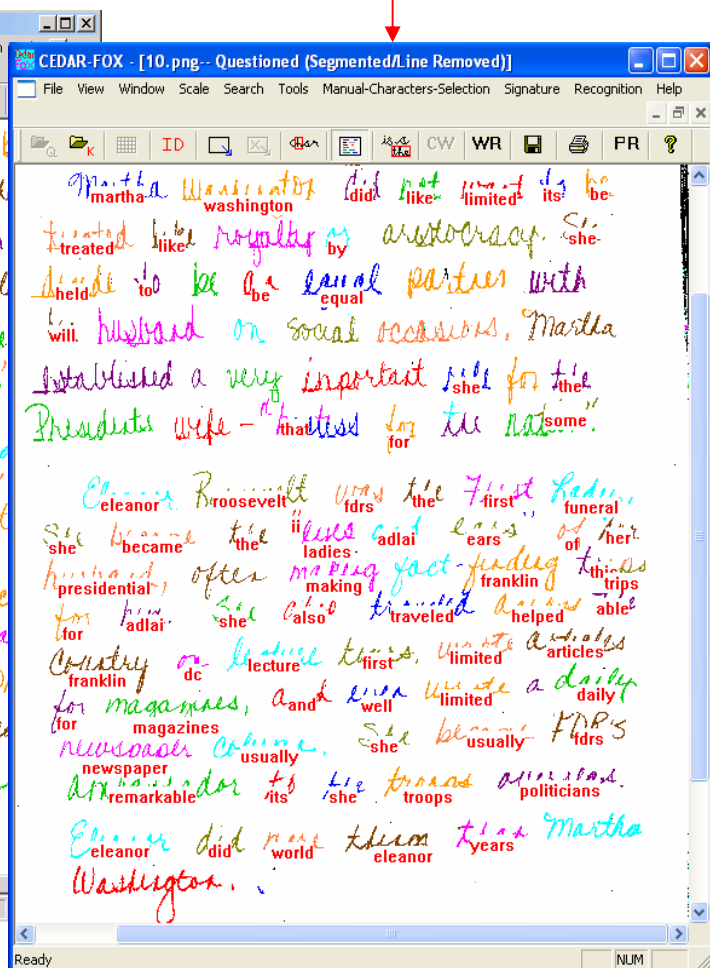 CEDAR-FOX - [10.png-- Questioned (Segmented/Line Removed)]
File View Window Scale Search Tools Manual-Characters-Selection Signature Recognition Help
Q K ID char is a the CW WR PR ?
Martha Washington did not limit its be
martha washington did like limited its be
treated like royalty or aristocracy. She
treated like by she
decide to be an equal partner with
held to be equal
husband on social occasions, Martha
will
established a very important role for the
she the
Presidents wife - "hostess for the nation".
that for some
Eleanor Roosevelt was the First Lady.
eleanor roosevelt fdrs the first funeral
She became the "eyes and ears" of her
she became the ii ladies adlai ears of her
husband, often making fact-finding trips
presidential making franklin this trips
for him. She also traveled
for adlai she also traveled helped able
Country on lecture tours, wrote articles
franklin dc lecture first limited articles
for magazines, and even wrote a daily
for magazines and well limited a daily
newspaper column. She became FDR's
newspaper usually she usually fdrs
ambassador to the troops overseas.
remarkable its she troops politicians
Eleanor did more than Martha
eleanor did world eleanor years
Washington.
Ready NUM